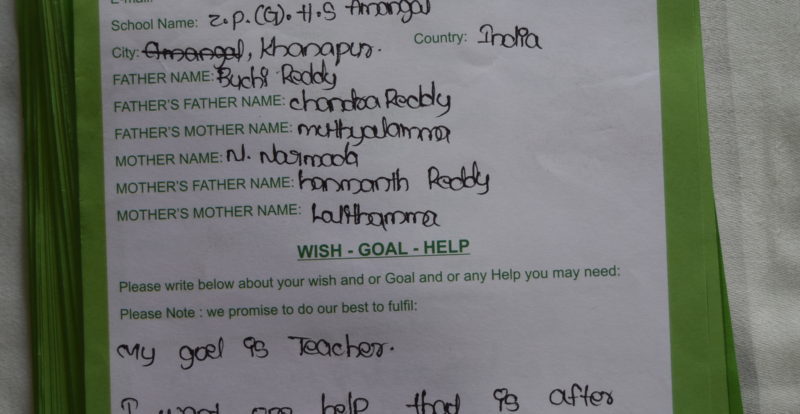 School Name: Z.P.(G).H.S Amangal
City: Amangal, Khanapur. Country: India
FATHER NAME: Buchi Reddy
FATHER'S FATHER NAME: chandra Reddy
FATHER'S MOTHER NAME: muthyalamma
MOTHER NAME: N. Narmada
MOTHER'S FATHER NAME: hanmanth Reddy
MOTHER'S MOTHER NAME: Lalithamma
WISH - GOAL - HELP
Please write below about your wish and or Goal and or any Help you may need:
Please Note : we promise to do our best to fulfil:
My goel is Teacher.
I help that is after